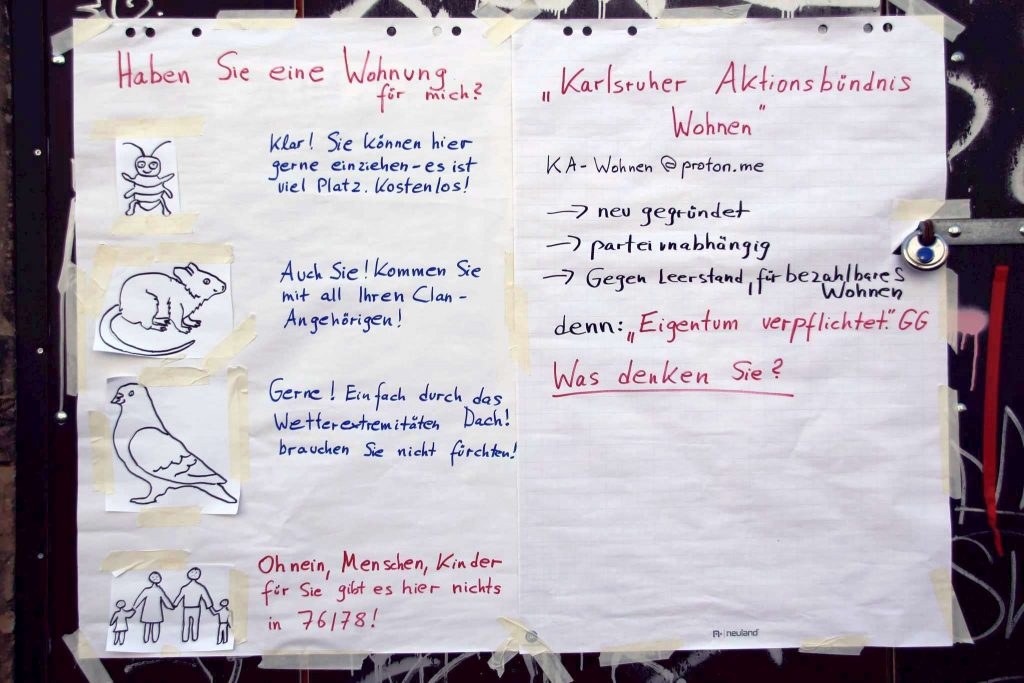 Haben Sie eine Wohnung
für mich?
Klar! Sie können hier
gerne einziehen - es ist
viel Platz. Kostenlos!
Auch Sie! Kommen Sie
mit all Ihren Clan-
Angehörigen!
Gerne! Einfach durch das
Wetterextremitäten Dach!
brauchen Sie nicht fürchten!
Oh nein, Menschen, Kinder
für Sie gibt es hier nichts
in 76/78!
"Karlsruher Aktionsbündnis
Wohnen"
KA-Wohnen@proton.me
→ neu gegründet
→ parteiunabhängig
→ Gegen Leerstand, für bezahlbares
Wohnen
denn: "Eigentum verpflichtet." GG
Was denken Sie?
neuland